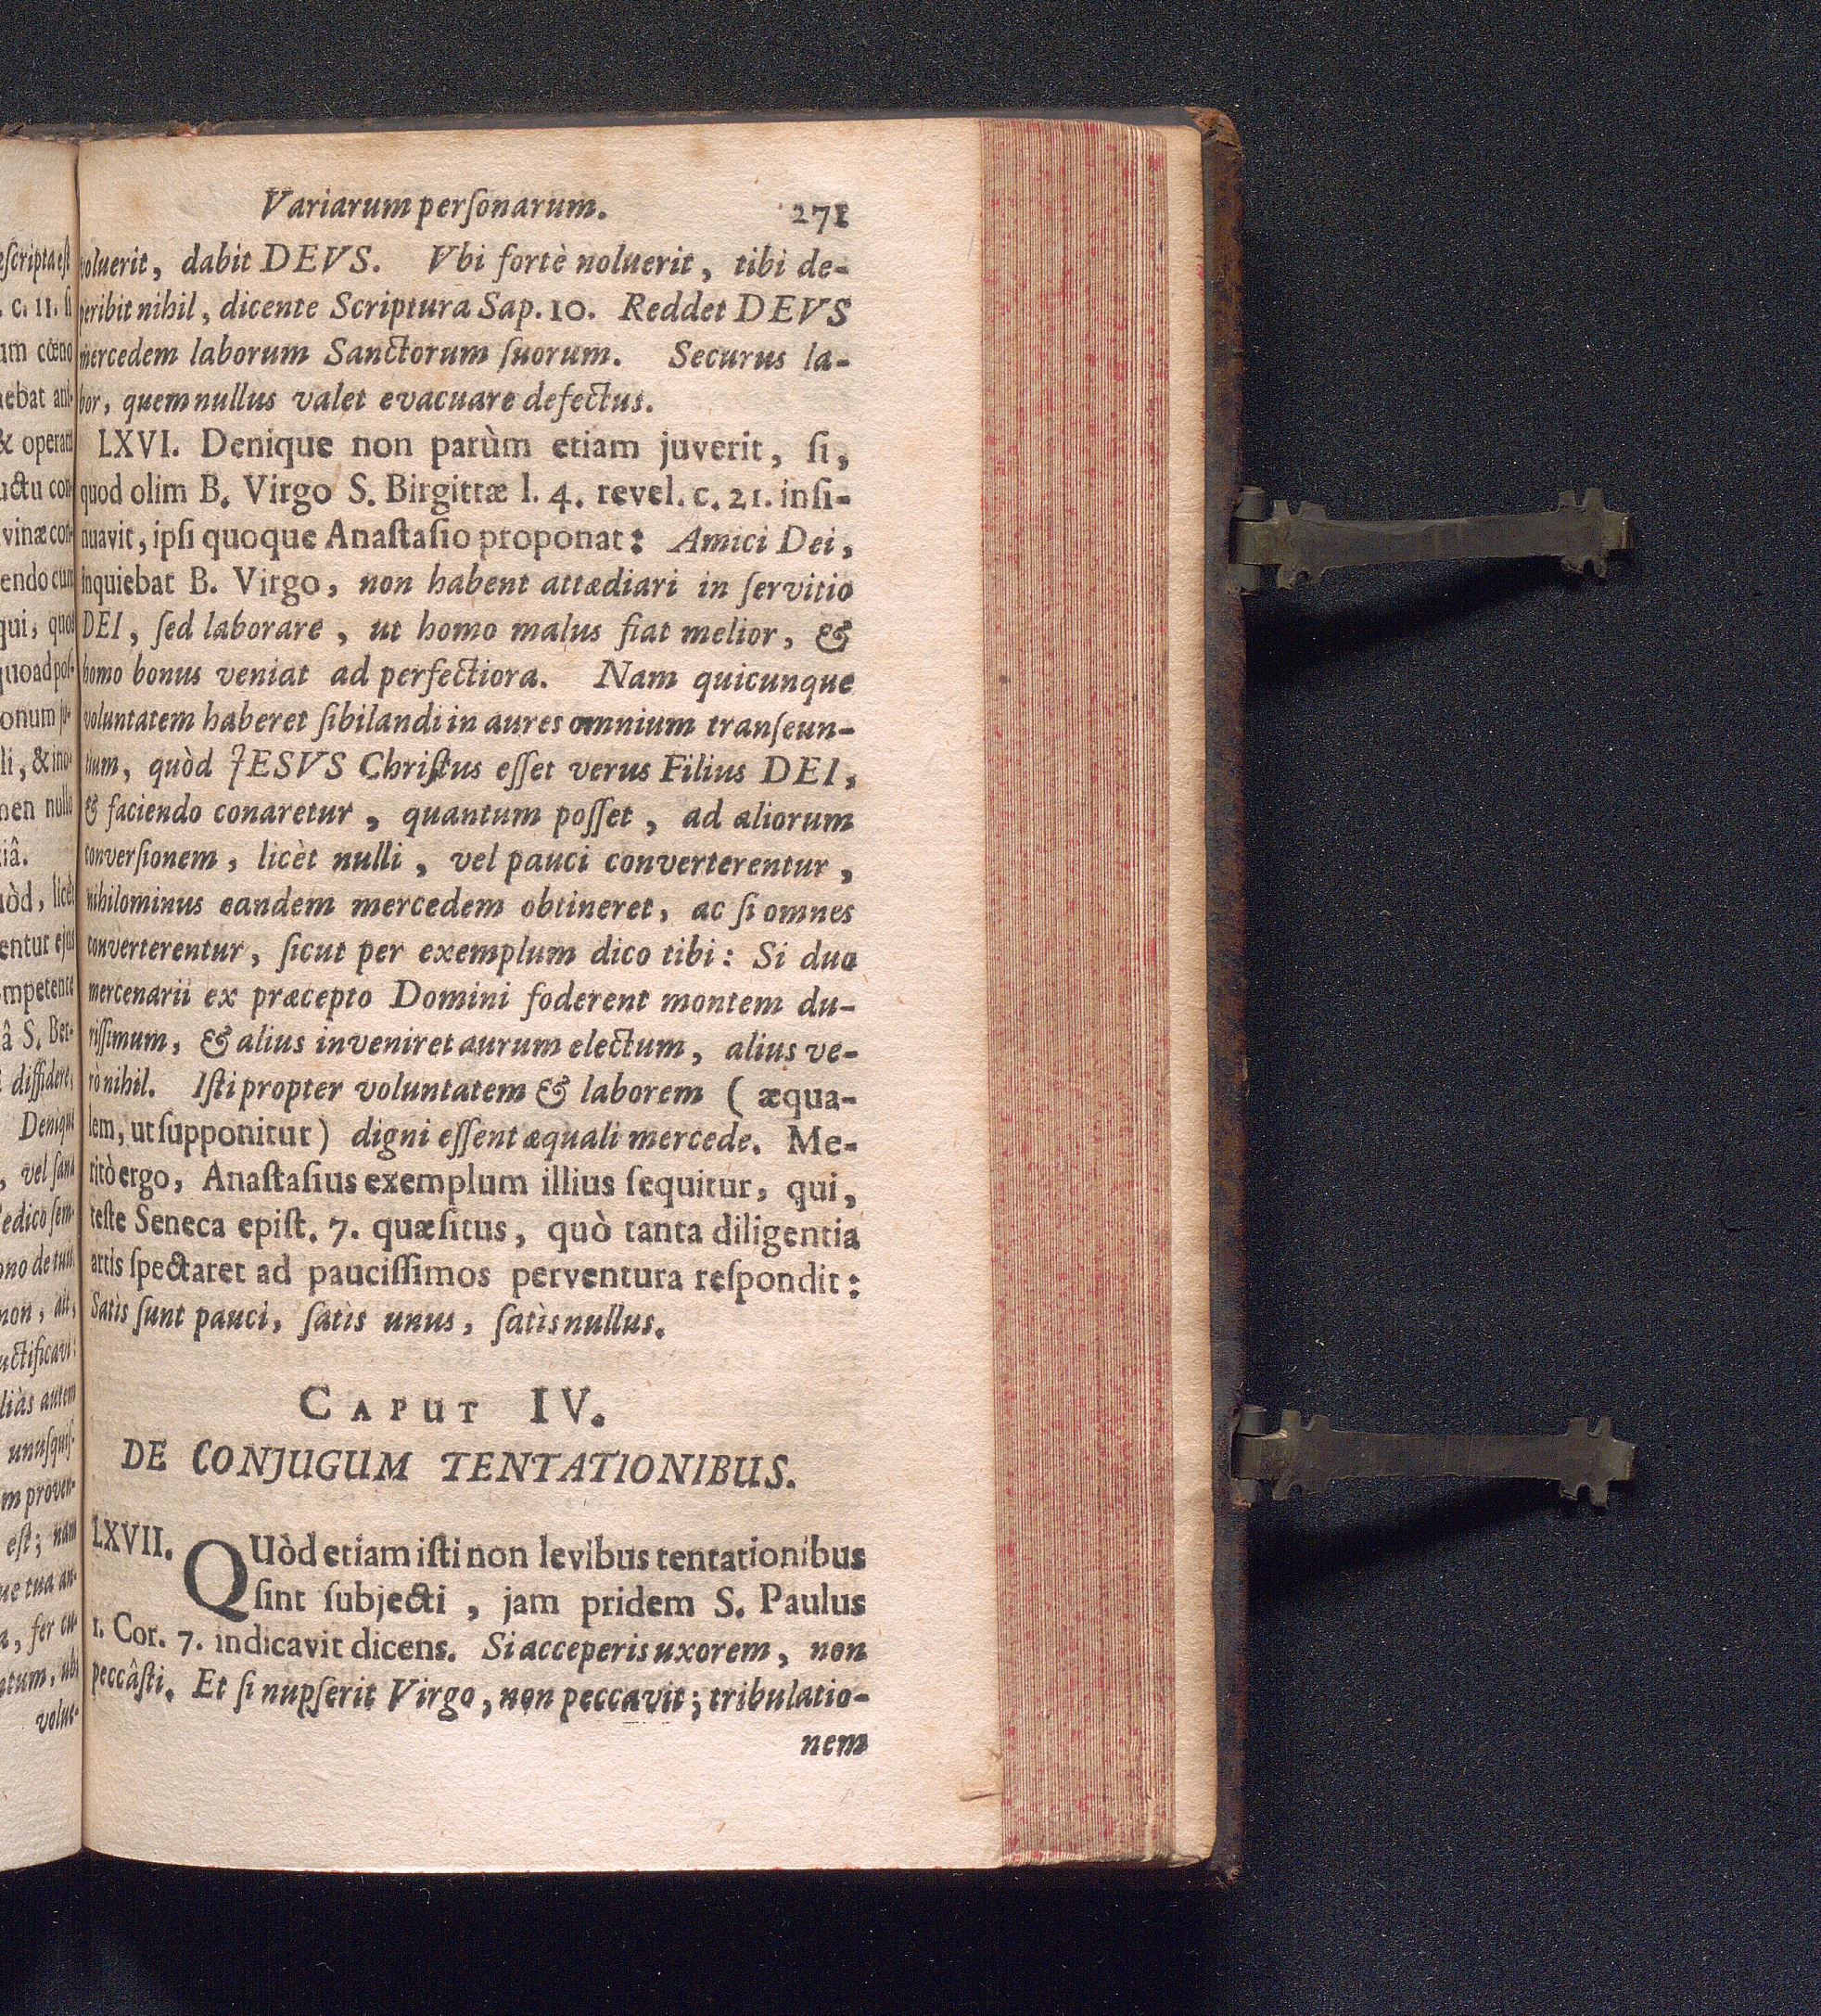 Variarum perſonarum. 271
voluerit, dabit DEVS. Vbi fortè noluerit, tibi de-
peribit nihil, dicente Scriptura Sap. 10. Reddet DEVS
mercedem laborum Sanctorum ſuorum. Securus la-
bor, quem nullus valet evacuare defectus.
LXVI. Denique non parùm etiam juverit, ſi,
quod olim B. Virgo S. Birgittæ l. 4. revel. c. 21. inſi-
nuavit, ipſi quoque Anaſtaſio proponat: Amici Dei,
inquiebat B. Virgo, non habent attædiari in ſervitio
DEI, ſed laborare, ut homo malus fiat melior, &
homo bonus veniat ad perfectiora. Nam quicunque
voluntatem haberet ſibilandi in aures omnium tranſeun-
tium, quòd JESVS Chriſtus eſſet verus Filius DEI,
& faciendo conaretur, quantum poſſet, ad aliorum
converſionem, licèt nulli, vel pauci converterentur,
nihilominus eandem mercedem obtineret, ac ſi omnes
converterentur, ſicut per exemplum dico tibi: Si duo
mercenarii ex præcepto Domini foderent montem du-
riſſimum, & alius inveniret aurum electum, alius ve-
rò nihil. Iſti propter voluntatem & laborem (æqua-
lem, ut ſupponitur) digni eſſent æquali mercede. Me-
ritò ergo, Anaſtaſius exemplum illius ſequitur, qui,
teſte Seneca epiſt. 7. quæſitus, quò tanta diligentia
artis ſpectaret ad pauciſſimos perventura reſpondit:
Satis ſunt pauci, ſatìs unus, ſatìs nullus.
CAPUT IV.
DE CONJUGUM TENTATIONIBUS.
LXVII. QUòd etiam iſti non levibus tentationibus
ſint ſubjecti, jam pridem S. Paulus
1. Cor. 7. indicavit dicens. Si acceperis uxorem, non
peccâſti. Et ſi nupſerit Virgo, non peccavit; tribulatio-
nem